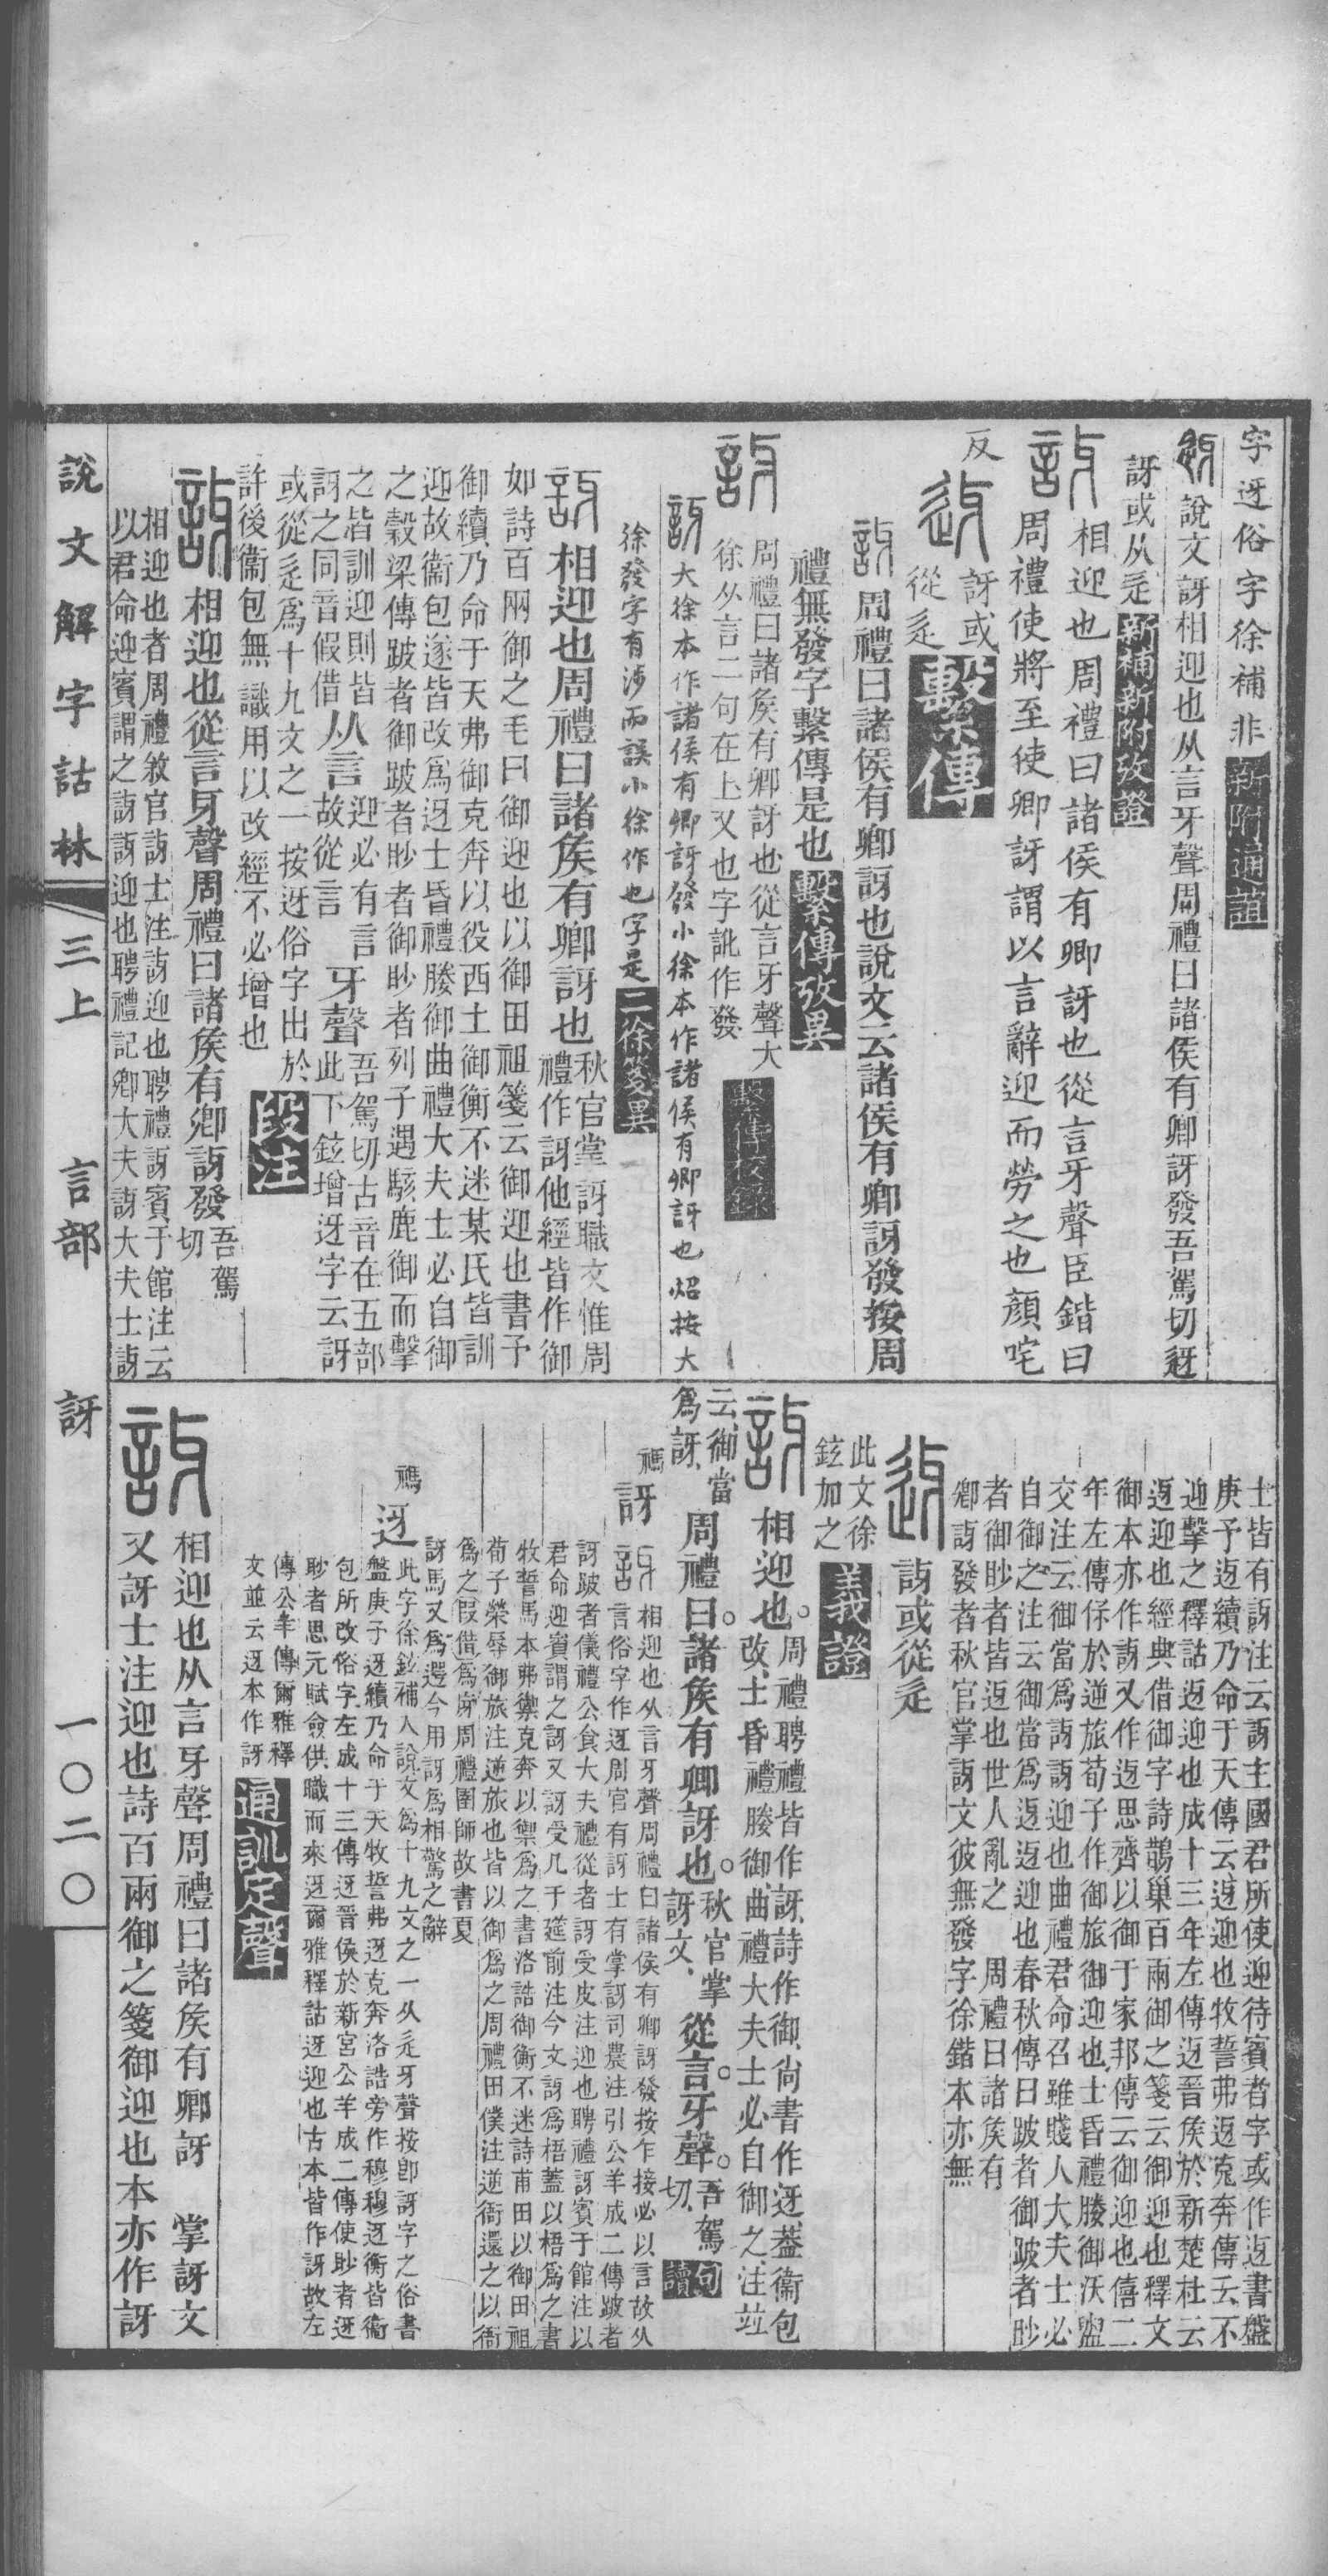 字迓俗字徐補非新附通誼
迓說文訝相迎也从言牙聲周禮曰諸侯有卿訝發吾駕切迓
訝或从辵新補新附攷證
訝相迎也周禮曰諸侯有卿訝也從言牙聲臣鍇曰
周禮使將至使卿訝謂以言辭迎而勞之也顔咤
反迓訝或
從辵繫傳
訝周禮曰諸侯有卿訝也說文云諸侯有卿訝發按周
禮無發字繫傳是也繫傳攷異
訝周禮曰諸矦有卿訝也從言牙聲大
徐从言二句在上又也字訛作發繫傳校錄
訝大徐本作諸侯有卿訝發小徐本作諸侯有卿訝也炤按大
徐發字有涉而誤小徐作也字是二徐箋異
訝相迎也周禮曰諸矦有卿訝也秋官掌訝職文惟周
禮作訝他經皆作御
如詩百兩御之毛曰御迎也以御田祖箋云御迎也書予
御續乃命于天弗御克奔以役西土御衡不迷某氏皆訓
迎故衞包遂皆改爲迓士昏禮媵御曲禮大夫士必自御
之穀梁傳跛者御跛者眇者御眇者列子遇駭鹿御而擊
之皆訓迎則皆
訝之同音假借从言迎必有言
故從言牙聲吾駕切古音在五部
此下鉉增迓字云訝
或從辵爲十九文之一按迓俗字出於
許後衞包無識用以改經不必增也段注
訝相迎也從言牙聲周禮曰諸矦有卿訝發吾駕
切
相迎也者周禮敘官訝士注訝迎也聘禮訝賓于館注云
以君命迎賓謂之訝訝迎也聘禮記卿大夫訝大夫士訝
士皆有訝注云訝主國君所使迎待賓者字或作迓書盤
庚予迓續乃命于天傳云迓迎也牧誓弗迓克奔傳云不
迎擊之釋詁迓迎也成十三年左傳迓晉矦於新楚杜云
迓迎也經典借御字詩鵲巢百兩御之箋云御迎也釋文
御本亦作訝又作迓思齊以御于家邦傳云御迎也僖二
年左傳保於逆旅荀子作御旅御迎也士昏禮媵御沃盥
交注云御當爲訝訝迎也曲禮君命召雖賤人大夫士必
自御之注云御當爲迓迓迎也春秋傳曰跛者御跛者眇
者御眇者皆迓也世人亂之　周禮曰諸矦有
卿訝發者秋官掌訝文彼無發字徐鍇本亦無
迓訝或從辵
此文徐
鉉加之義證
訝相迎也。周禮聘禮皆作訝、詩作御、尙書作迓、葢衞包
改、士昏禮媵御、曲禮大夫士必自御之、注竝
云、御當
爲訝、周禮曰。諸矦有卿訝也。秋官掌
訝文、從言。牙聲。吾駕
切、句讀
訝　相迎也从言牙聲周禮曰諸侯有卿訝發按乍接必以言故从
言俗字作迓周官有訝士有掌訝司農注引公羊成二傳跛者
訝跛者儀禮公食大夫禮從者訝受皮注迎也聘禮訝賓于館注以
君命迎賓謂之訝又訝受几于筵前注今文訝爲梧蓋以梧爲之書
牧誓馬本弗禦克奔以禦爲之書洛誥御衡不迷詩甫田以御田祖
荀子榮辱御旅注逆旅也皆以御爲之周禮田僕注逆衙還之以衙
爲之假借爲庌周禮圉師故書夏
訝馬又爲遻今用訝爲相驚之辭
迓此字徐鉉補入說文爲十九文之一从辵牙聲按卽訝字之俗書
盤庚予迓續乃命于天牧誓弗迓克奔洛誥旁作穆穆迓衡皆衞
包所改俗字左成十三傳迓晉侯於新宮公羊成二傳使眇者迓
眇者思元賦僉供職而來迓爾雅釋詁迓迎也古本皆作訝故左
傳公羊傳爾雅釋
文並云迓本作訝通訓定聲
訝相迎也从言牙聲周禮曰諸矦有卿訝　掌訝文
又訝士注迎也詩百兩御之箋御迎也本亦作訝
說文解字詁林　三上　言部　訝　一〇二〇